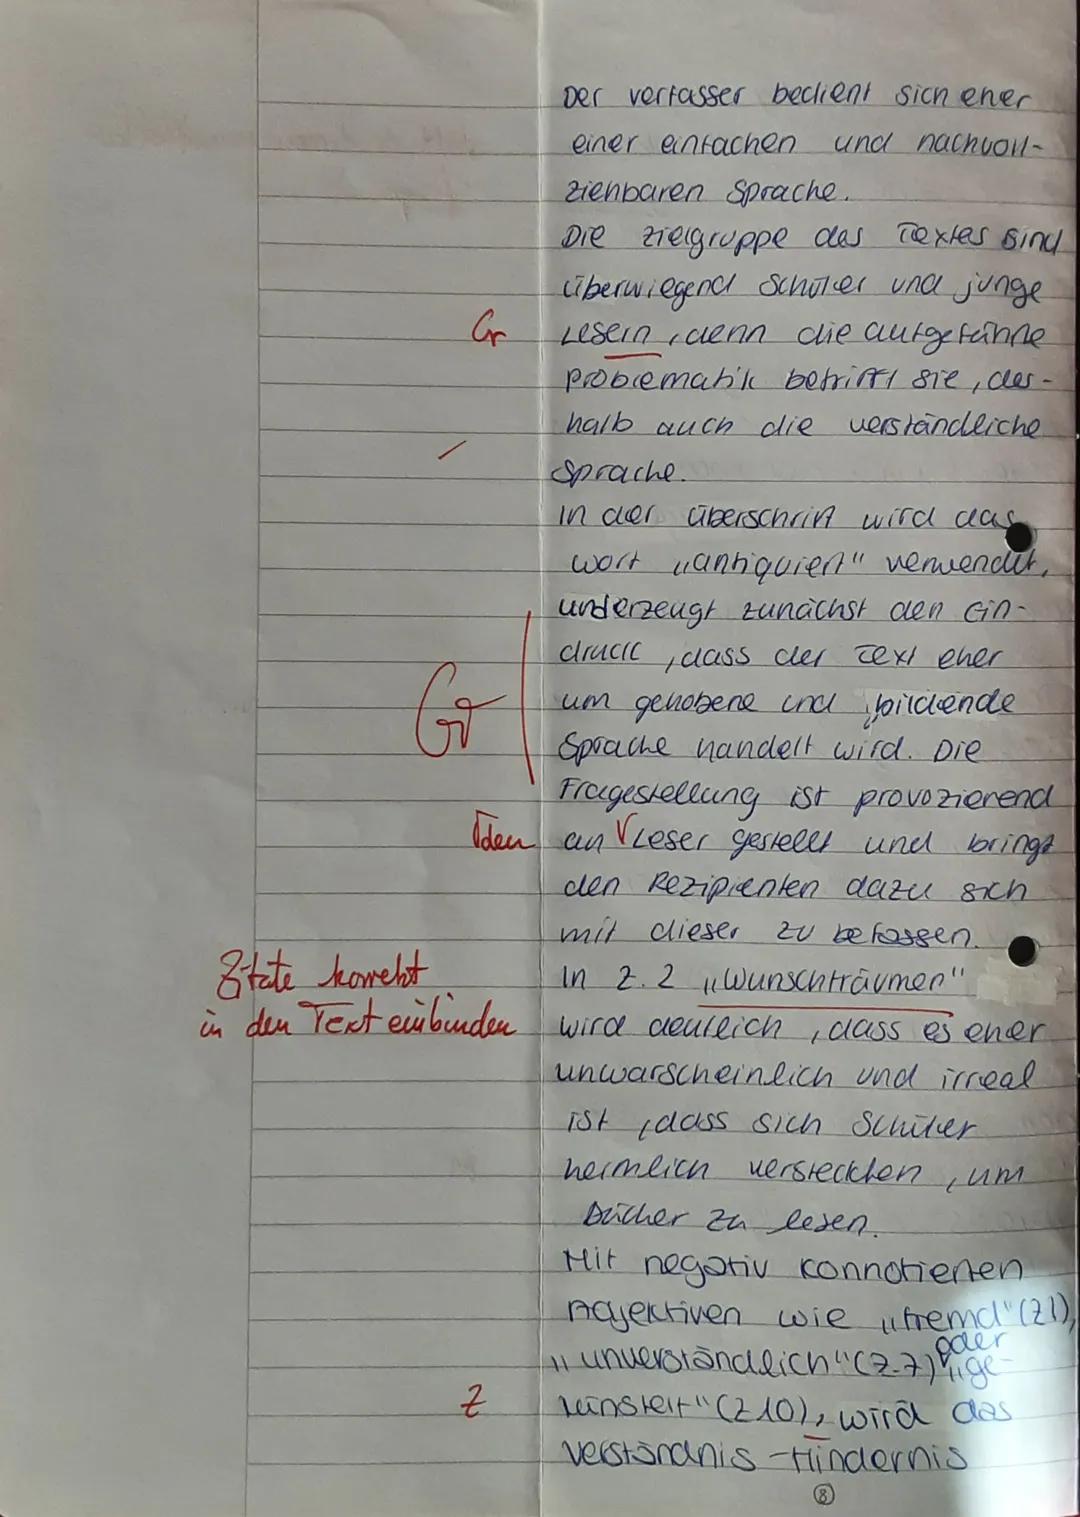 Der Verfasser bedient sich eher
einer einfachen und nachvoll-
ziehbaren Sprache.
Die Zielgruppe des Textes sind
überwiegend Schüler und junge
Gr Lesern, denn die aufgeführte
Problematik betrifft sie, des-
halb auch die verständliche
Sprache.
In der Überschrift wird das
Wort „antiquiert" verwendet,
underzeugt zunächst den Ein-
druck, dass der Text eher
um gehobene und bildende
Gr Sprache handelt wird. Die
Fragestellung ist provozierend
√den an √ Leser gestellt und bringt
den Rezipienten dazu sich
mit dieser zu befassen.
Zitate korrekt In Z. 2 „Wunschträumen"
in den Text einbinden wird deutlich, dass es eher
unwarscheinlich und irreal
ist, dass sich Schüler
heimlich versteckten, um
Bücher zu lesen.
Mit negativ konnotierten
Adjektiven wie „fremd" (Z1),
„unverständlich" (Z.7) oder „ge-
Z künstelt" (Z10), wird das
Verständnis-Hindernis
8